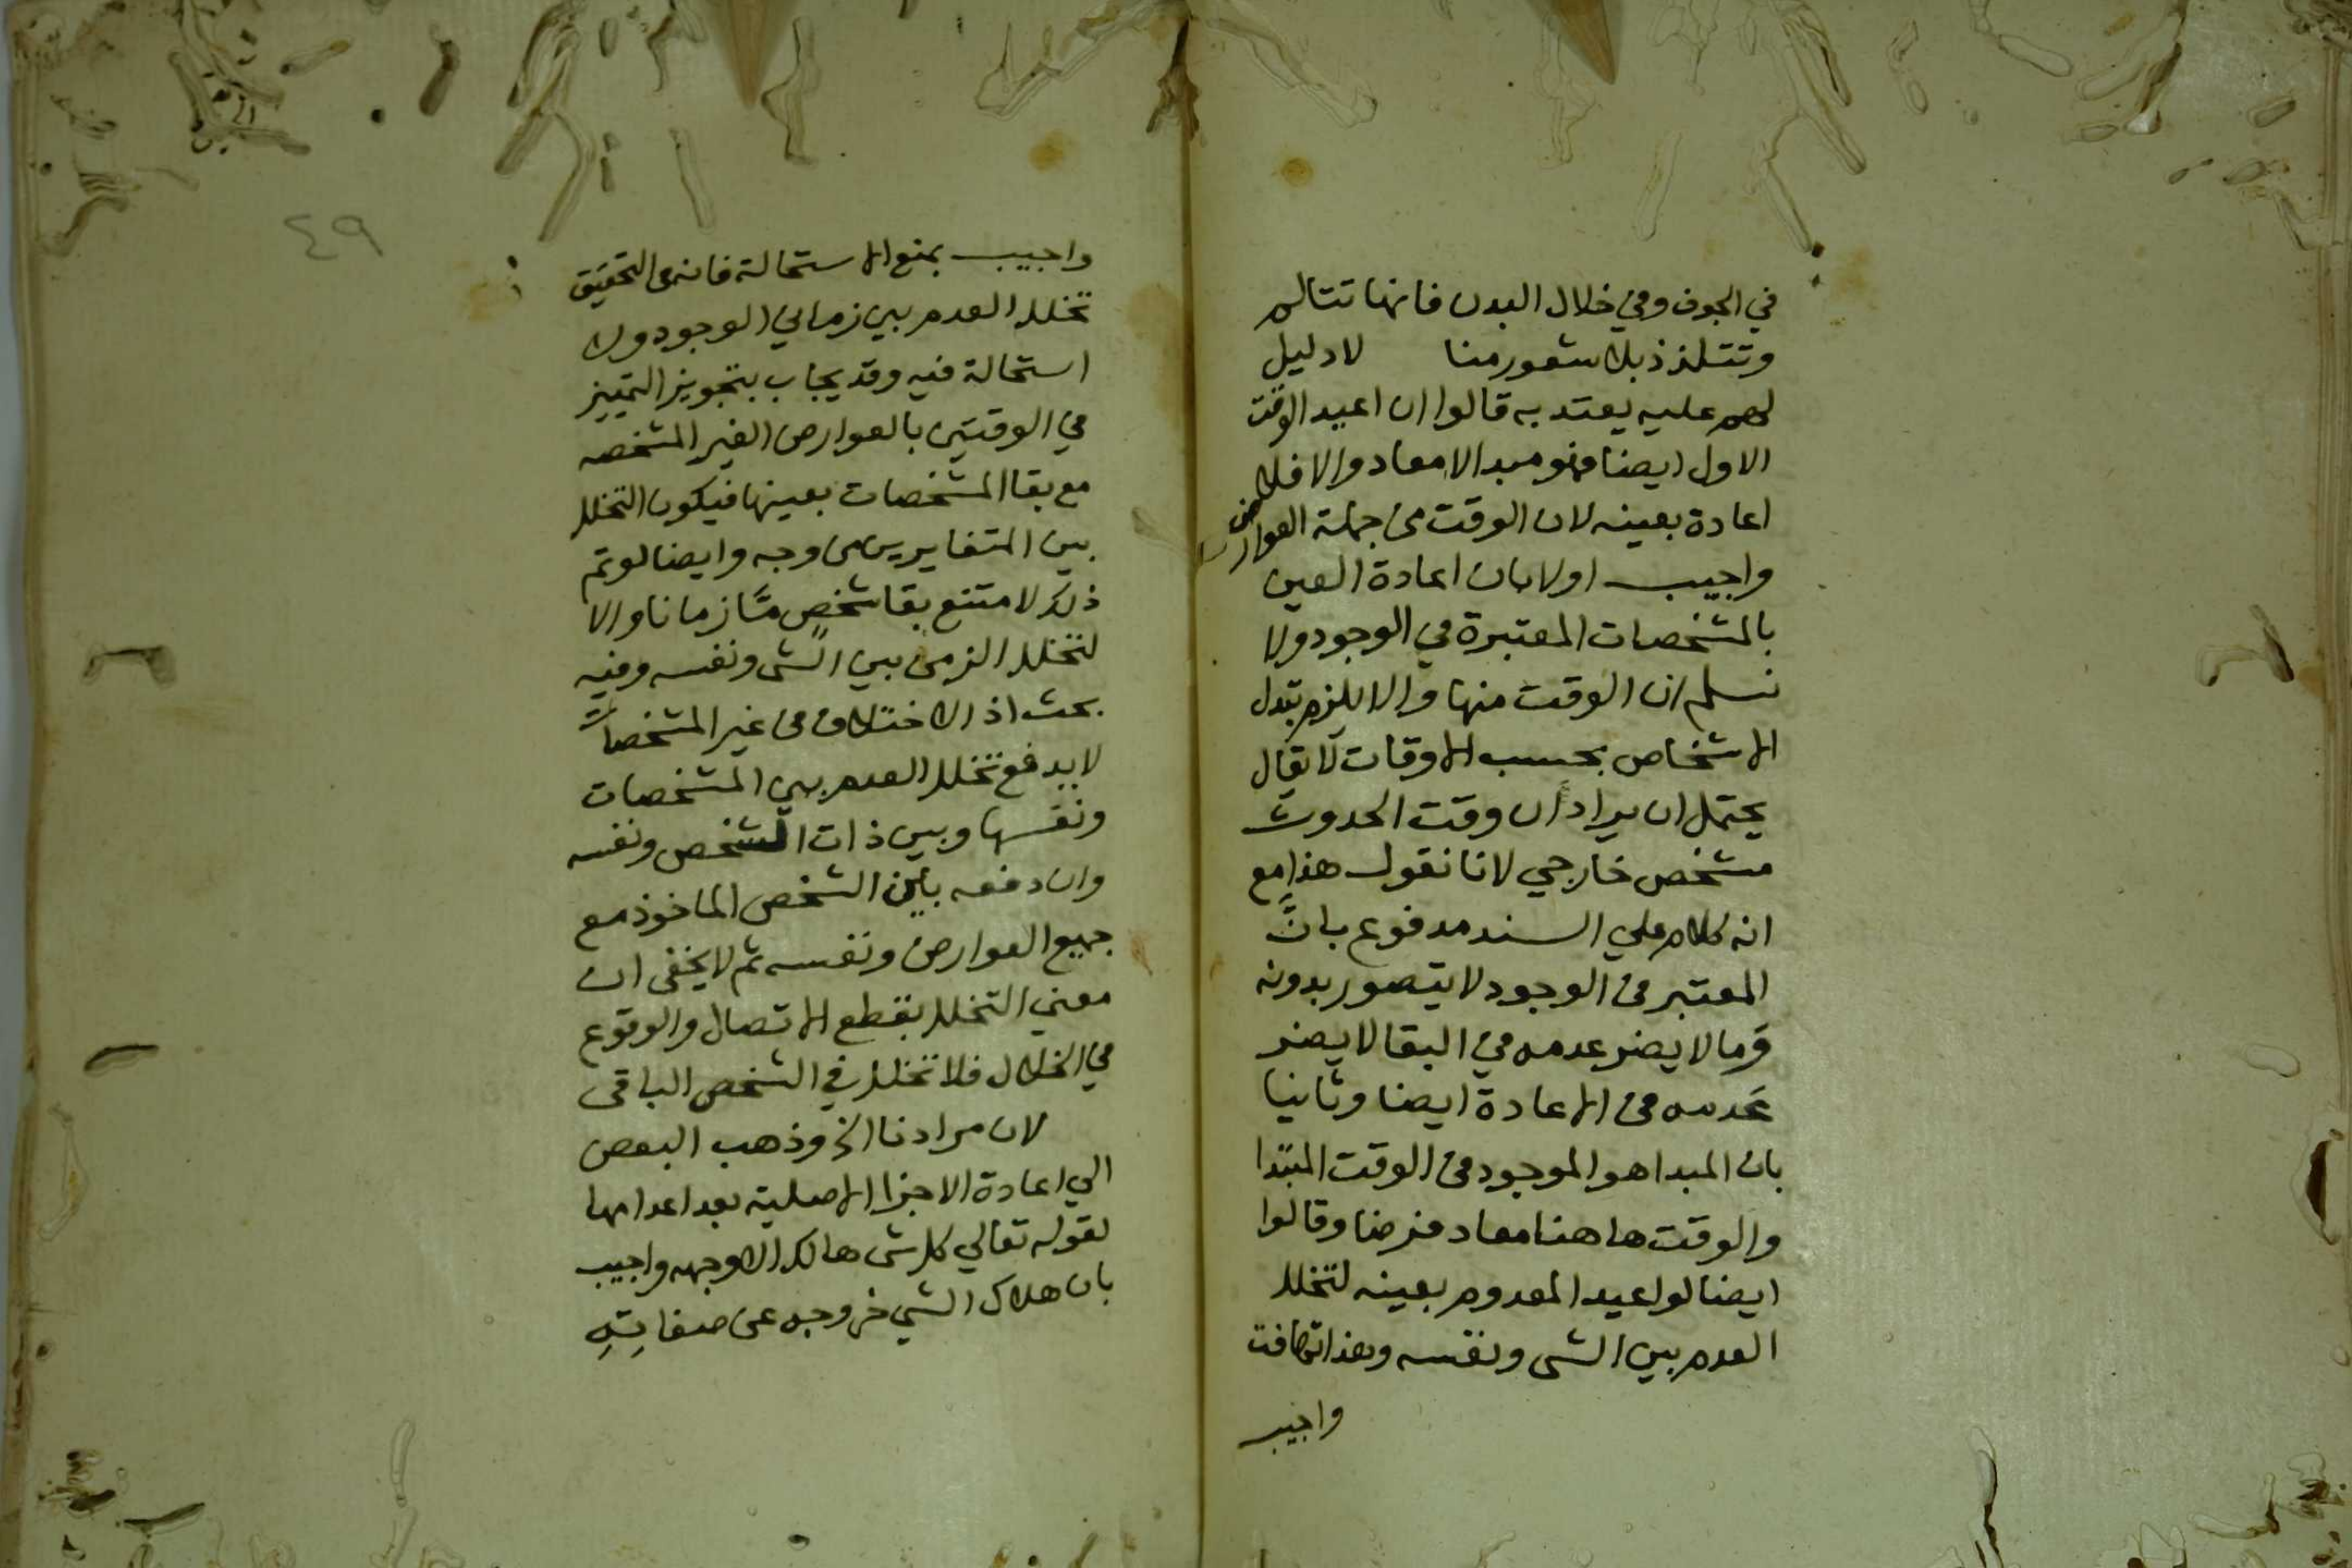 في الجوف وفي خلال البدن فانها تتالم
وتتلذذ بلا شعور منا لا دليل
لهم عليه يعتد به قالوا ان اعيد الوقت
الاول ايضا فهو مبدا لا معاد والا فلا
اعادة بعينه لان الوقت من جملة العوارض
واجيب اولا بان اعادة العين
بالمشخصات المعتبرة في الوجود ولا
نسلم ان الوقت منها والا يلزم تبدل
الاشخاص بحسب الاوقات لا يقال
يحتمل ان يراد ان وقت الحدوث
مشخص خارجي لانا نقول هذا مع
انه كلام علي السند مدفوع بانَّ
المعتبر في الوجود لا يتصور بدونه
وما لا يضر عدمه في البقا لا يضر
عدمه في الاعادة ايضا وثانيا
بان المبدا هو الموجود في الوقت المبتدا
والوقت هاهنا معاد فرضا وقالوا
ايضا لو اعيد المعدوم بعينه لتخلل
العدم بين الشى ونفسه وهذا تهافت
واجيب
٤٩
واجيب بمنع الاستحالة فانه في التحقيق
تخلل العدم بين زماني الوجود ولا
استحالة فيه وقد يجاب بتجويز التمييز
في الوقتين بالعوارض الغير المشخصه
مع بقا المشخصات بعينها فيكون التخلل
بين المتغايرين من وجه وايضا لو تم
ذلك لامتنع بقا شخصٍ مّا زمانا والا
لتخلل الزمن بين الشى ونفسه وفيه
بحث اذ الاختلاف في غير المشخصات
لا يدفع تخلل العدم بين المشخصات
ونفسها وبين ذات الشخص ونفسه
وان دفعه بين الشخص الماخوذ مع
جميع العوارض ونفسه ثم لا يخفى ان
معني التخلل بقطع الاتصال والوقوع
في الخلال فلا تخلل في الشخص الباقى
لان مرادنا الخ وذهب البعض
الي اعادة الاجزا الاصلية بعد اعدامها
لقوله تعالي كل شى هالك الا وجهه واجيب
بان هلاك الشي خروجه عن صفاتِهِ